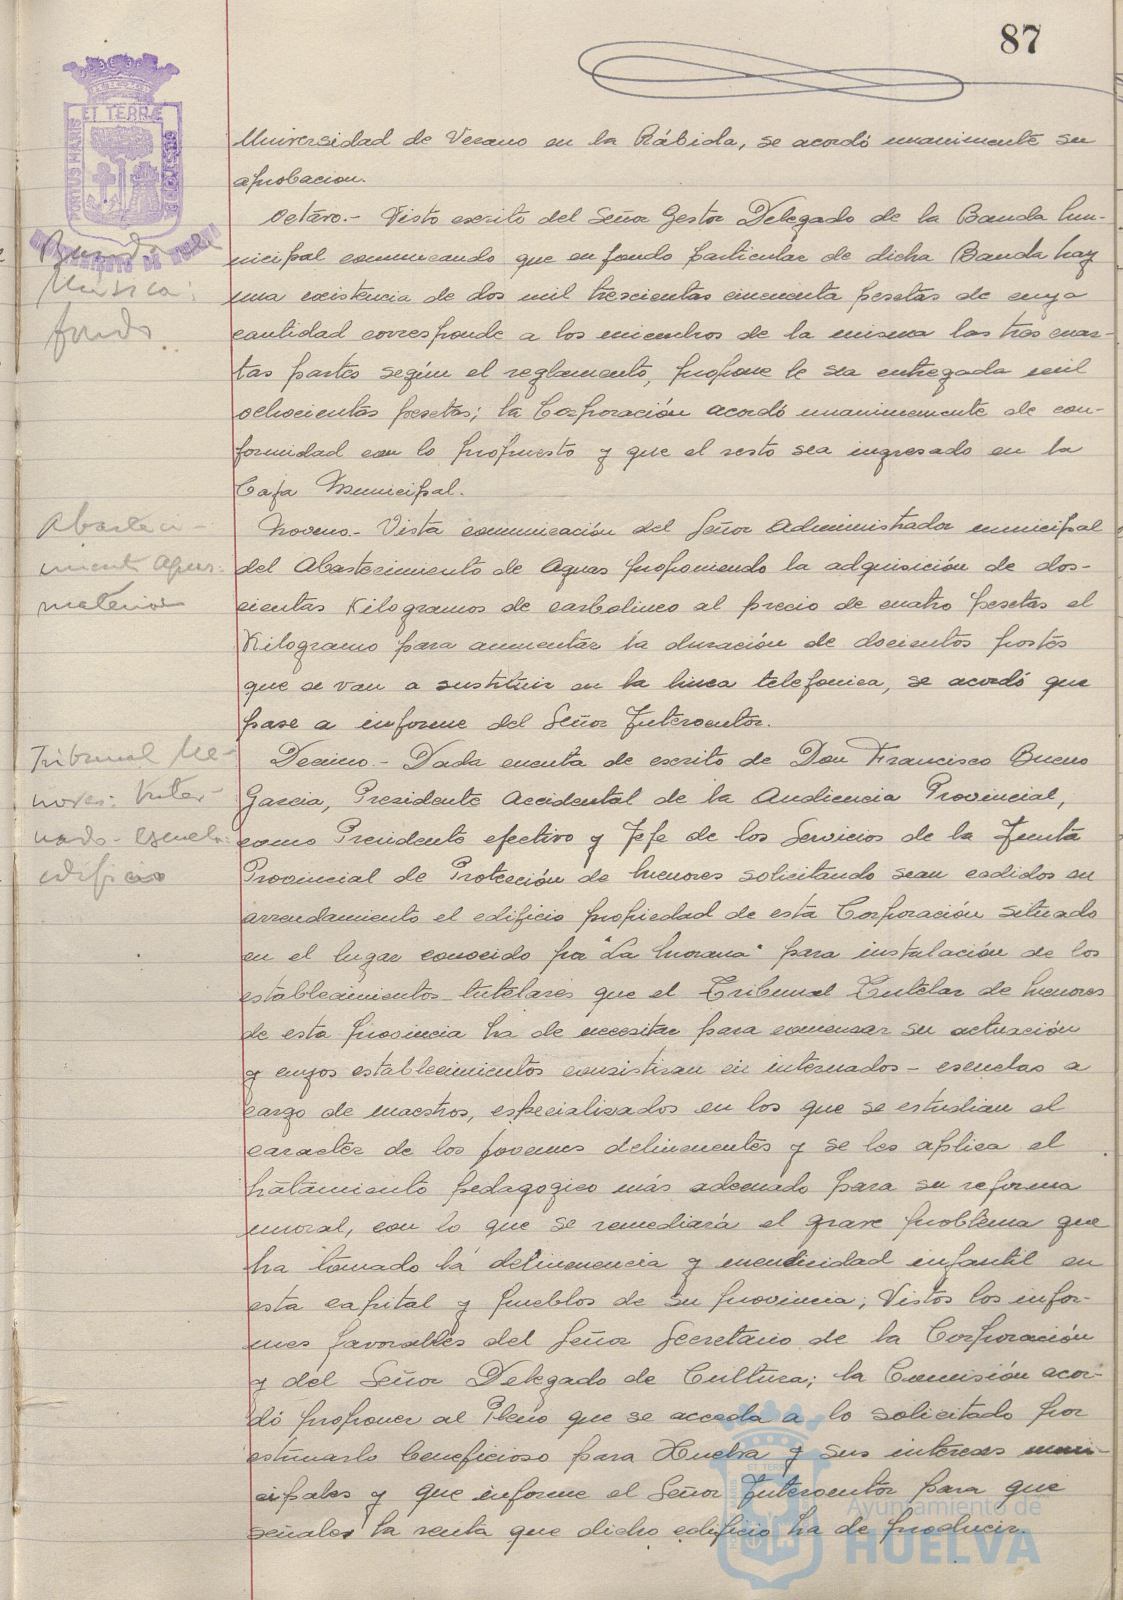 87
PORTUS MARIS
ET TERRÆ
CUSTODIA
AYUNTAMIENTO DE HUELVA
Universidad de Verano en la Rábida, se acordó unanimente su
aprobacion.
Banda de
Música:
fondo
Octavo.- Visto escrito del Señor Gestor Delegado de la Banda Mu-
nicipal comunicando que en fondo particular de dicha Banda hay
una existencia de dos mil trescientas cincuenta pesetas de cuya
cantidad corresponde a los miembros de la misma las tres cuar-
tas partes según el reglamento, propone le sea entregada mil
ochocientas pesetas; la Corporación acordó unanimemente de con-
formidad con lo propuesto y que el resto sea ingresado en la
Caja Municipal.
Abasteci-
miento Aguas:
material
Noveno.- Vista comunicación del Señor Administrador municipal
del Abastecimiento de Aguas proponiendo la adquisición de dos-
cientas Kilogramos de carbolineo al precio de cuatro pesetas el
Kilogramo para aumentar la duración de docientos postes
que se van a sustituir en la linea telefonica, se acordó que
pase a informe del Señor Interventor.
Tribunal Me-
nores: Inter-
nado-escuela:
edificio
Decimo.- Dada cuenta de escrito de Don Francisco Bueno
Garcia, Presidente Accidental de la Audiencia Provincial,
como Presidente efectivo y Jefe de los Servicios de la Junta
Provincial de Protección de Menores solicitando sean cedidos en
arrendamiento el edificio propiedad de esta Corporación situado
en el lugar conocido por "La Morana" para instalación de los
establecimientos tutelares que el Tribunal Tutelar de Menores
de esta provincia ha de necesitar para comenzar su actuación
y cuyos establecimientos consistiran en internados-escuelas a
cargo de maestros, especializados en los que se estudian el
caracter de los jovenes delincuentes y se les aplica el
tratamiento pedagogico más adecuado para su reforma
moral, con lo que se remediará el grave problema que
ha tomado la delincuencia y mendicidad infantil en
esta capital y pueblos de su provincia; Vistos los infor-
mes favorables del Señor Secretario de la Corporación
y del Señor Delegado de Cultura; la Comisión acor-
dó proponer al Pleno que se acceda a lo solicitado por
estimarlo beneficioso para Huelva y sus intereses muni-
cipales y que informe el Señor Interventor para que
señale la renta que dicho edificio ha de producir.
Ayuntamiento de
HUELVA